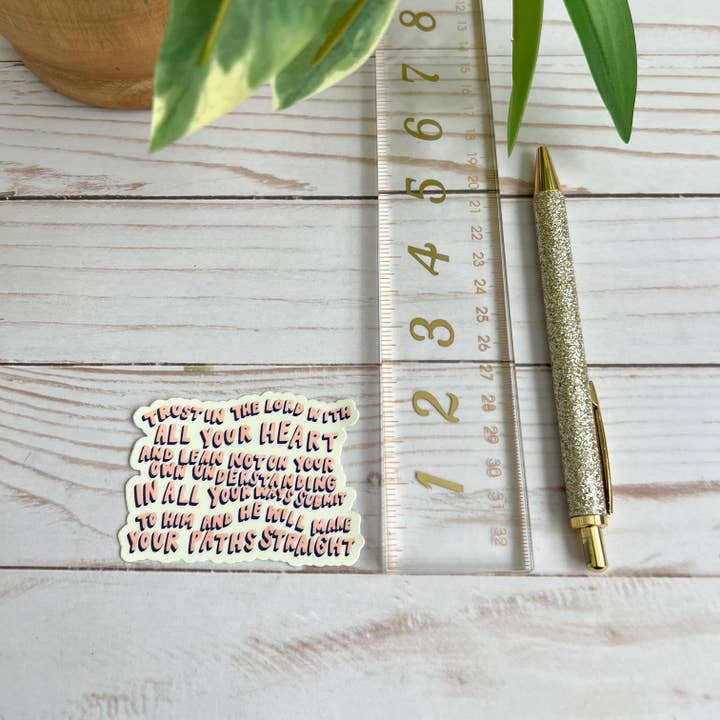 TRUST IN THE LORD WITH
ALL YOUR HEART
AND LEAN NOT ON YOUR
OWN UNDERSTANDING
IN ALL YOUR WAYS SUBMIT
TO HIM AND HE WILL MAKE
YOUR PATHS STRAIGHT
8
7
6
5
4
3
2
1
13
14
15
16
17
18
19
20
21
22
23
24
25
26
27
28
29
30
31
32